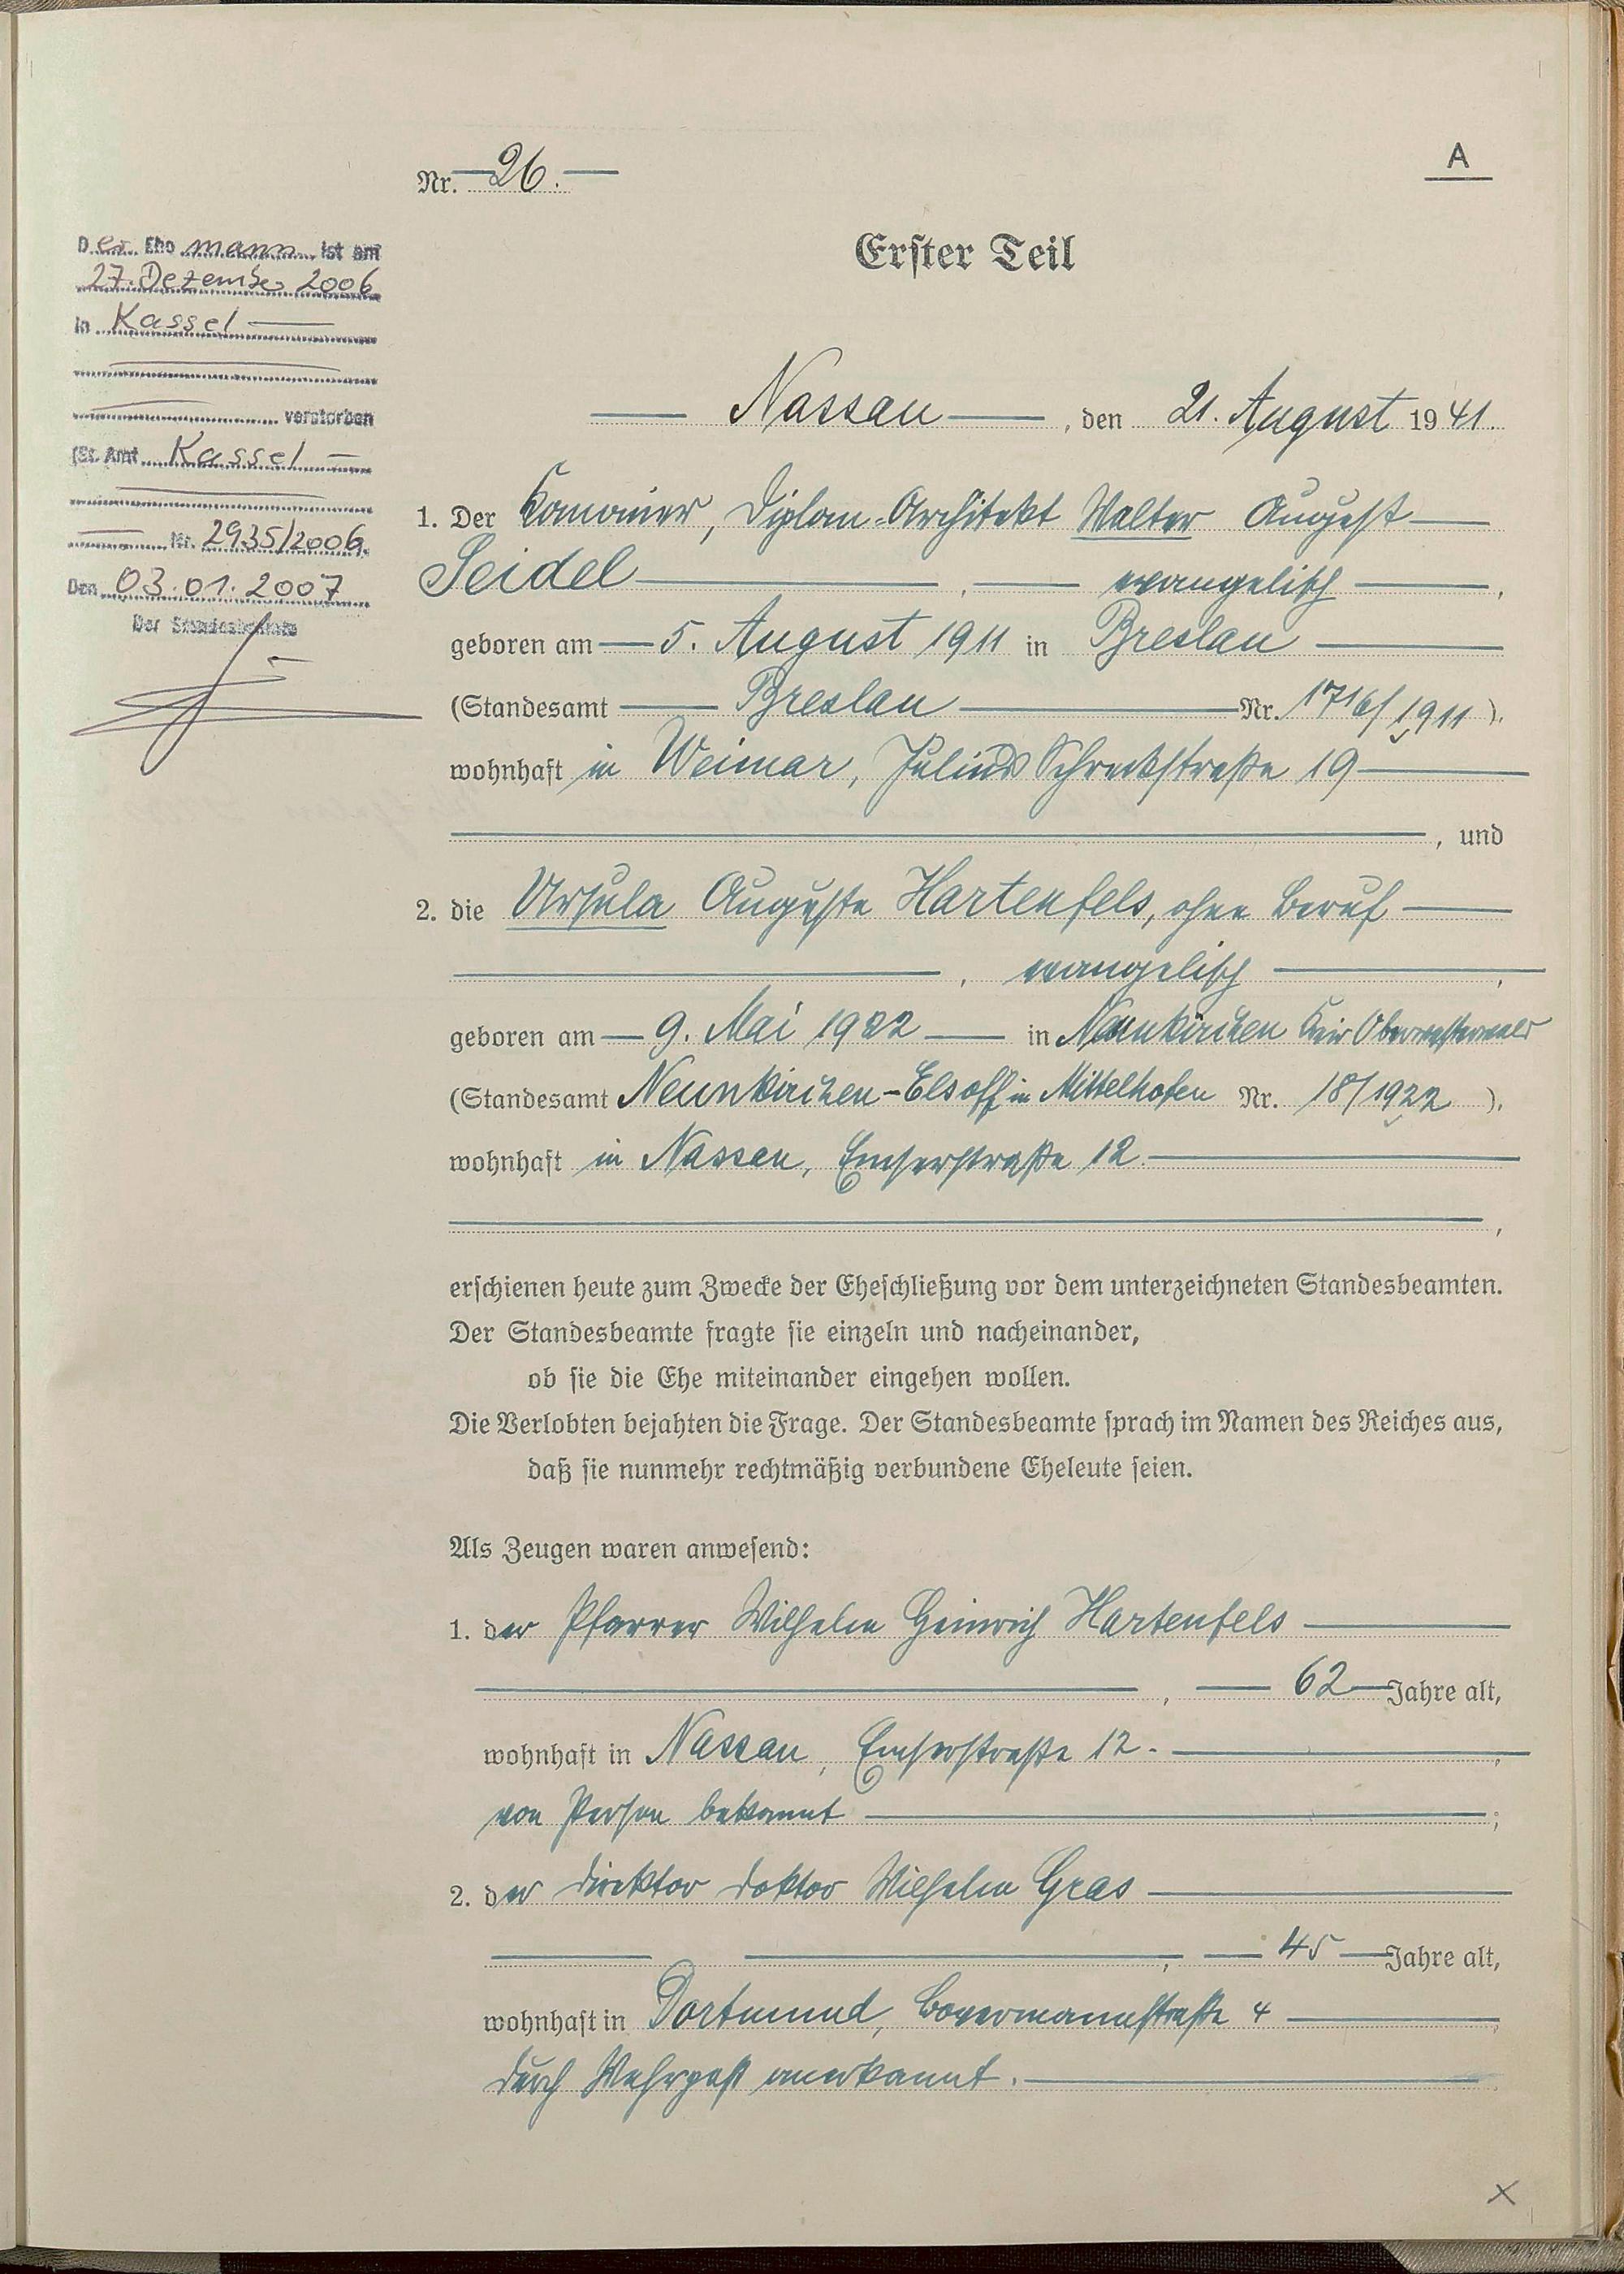 A
Nr. 26.
Erster Teil
Der Ehemann ist am
27. Dezember 2006
in Kassel
verstorben
(St. Amt Kassel
Nr. 2935/2006.
Den 03.01.2007
Der Standesbeamte
Nassau, den 21. August 1941.
1. Der Kanonier, Diplom-Architekt Walter August
Seidel, evangelisch,
geboren am 5. August 1911 in Breslau
(Standesamt Breslau Nr. 1716/1911).
wohnhaft in Weimar, Julius Schreckstraße 19
, und
2. die Ursula Auguste Hartenfels, ohne Beruf
, evangelisch,
geboren am 9. Mai 1922 in Neunkirchen Kreis Oberwesterwald
(Standesamt Neunkirchen-Elsoff in Mittelhofen Nr. 18/1922).
wohnhaft in Nassau, Emserstraße 12.
,
erschienen heute zum Zwecke der Eheschließung vor dem unterzeichneten Standesbeamten.
Der Standesbeamte fragte sie einzeln und nacheinander,
ob sie die Ehe miteinander eingehen wollen.
Die Verlobten bejahten die Frage. Der Standesbeamte sprach im Namen des Reiches aus,
daß sie nunmehr rechtmäßig verbundene Eheleute seien.
Als Zeugen waren anwesend:
1. der Pfarrer Wilhelm Heinrich Hartenfels
, 62 Jahre alt,
wohnhaft in Nassau, Emserstraße 12.,
von Person bekannt;
2. der Direktor Doktor Wilhelm Gras
, 45 Jahre alt,
wohnhaft in Dortmund, Bovermannstraße 4,
durch Wehrpaß anerkannt.